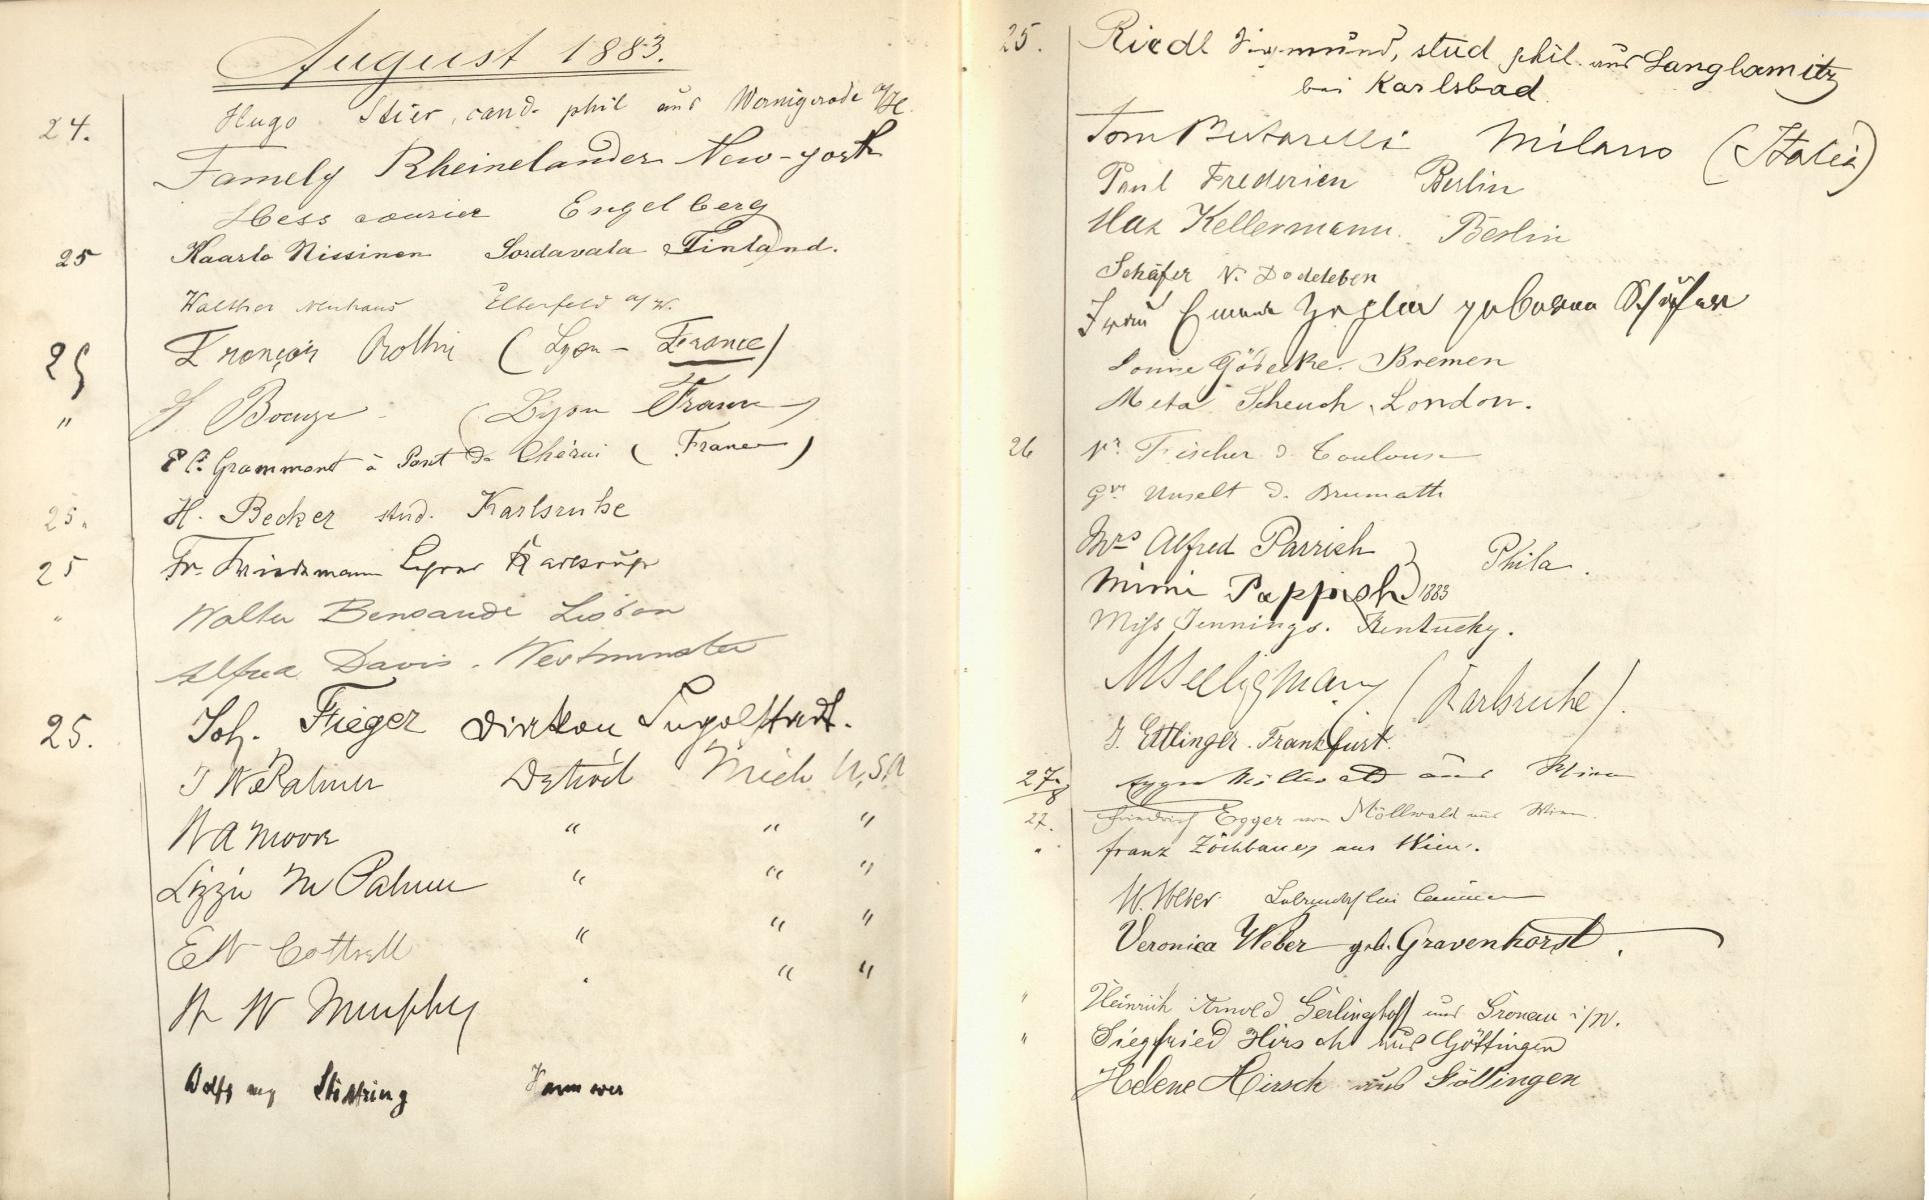 August 1883.
24. Hugo Stier, cand. phil aus Wernigerode a/H.
Famely Rheinelander New-york
Hess courier Engelberg
25 Kaarlo Nissinen Sordavala Finland.
Walther Neuhaus Elberfeld a/W.
25 François Rollin (Lyon - France)
" (Lyon France)
Grammont à Pont de Chérui (France)
25. H. Becker stud. Karlsruhe
25 Fr. Karlsruhe
" Walter Bensaude Lisbon
Alfred Davis. Westminster
25. Joh. Fieger Ingolstadt.
T W Palmer Detroit Mich U.S.A
W A Moore " " "
Lizzie M Palmer " " "
E W Cottrell " " "
W W Murphy " "
Hannover
25. Riedl Sigmund, stud phil. aus Langhamitz
bei Karlsbad.
Tom Bertarelli Milano (Italia)
Paul Berlin
Max Kellermann. Berlin
Schäfer v. Dodeleben
Frau geborene Schäfer
Louise Gödecke. Bremen
Meta Scheuch, London.
26 Fischer d. Toulouse
Unselt d. Brumath
Mrs Alfred Parrish
Phila.
Mimi Parrish 1883
Miss Jennings. Kentucky.
M Seeligmann (Karlsruhe).
J. Ettlinger. Frankfurt.
27/8 Egger Möllwald aus Wien
27. Friedrich Egger von Möllwald aus Wien.
" Franz Zöchbauer aus Wien.
W. Weber
Veronica Weber geb. Gravenhorst.
" Heinrich Arnold Gerlinghoff aus Gronau i/W.
" Siegfried Hirsch aus Göttingen
Helene Hirsch aus Göttingen